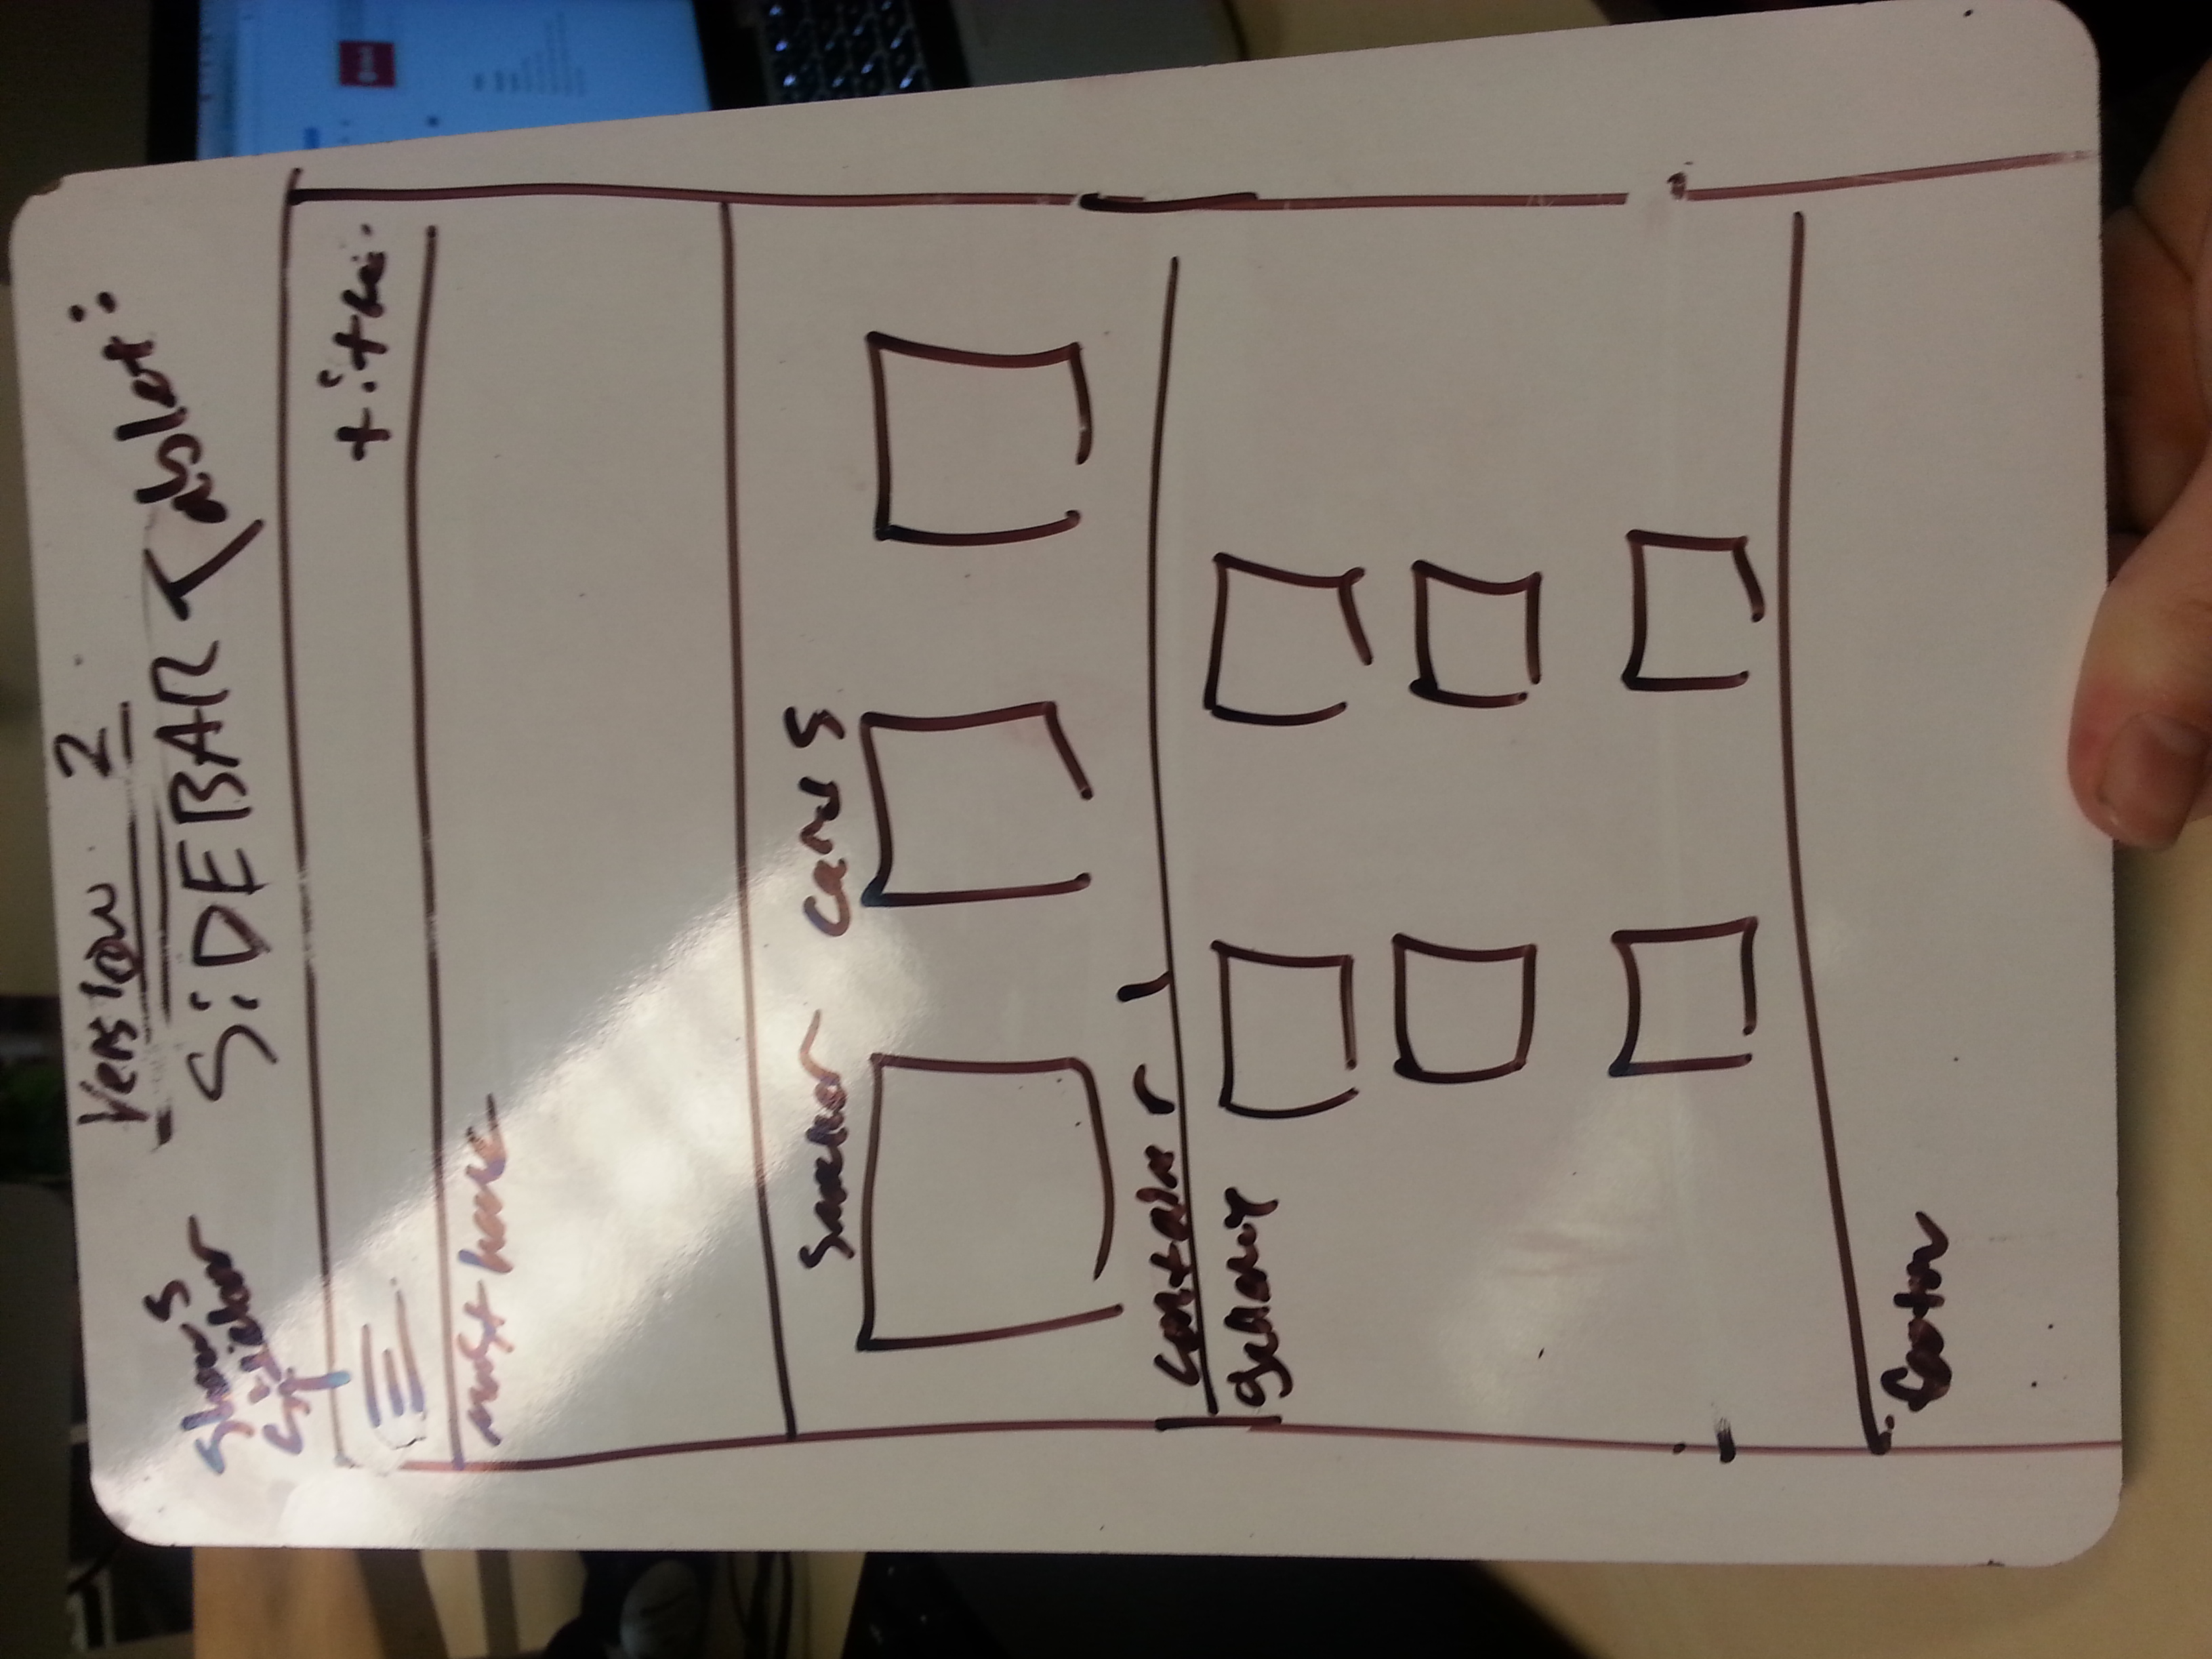 Version 2
SiDEBAR Tablet:
Shows
Sidebar
title
mast head
Smaller cards
container 1
gallery
footer